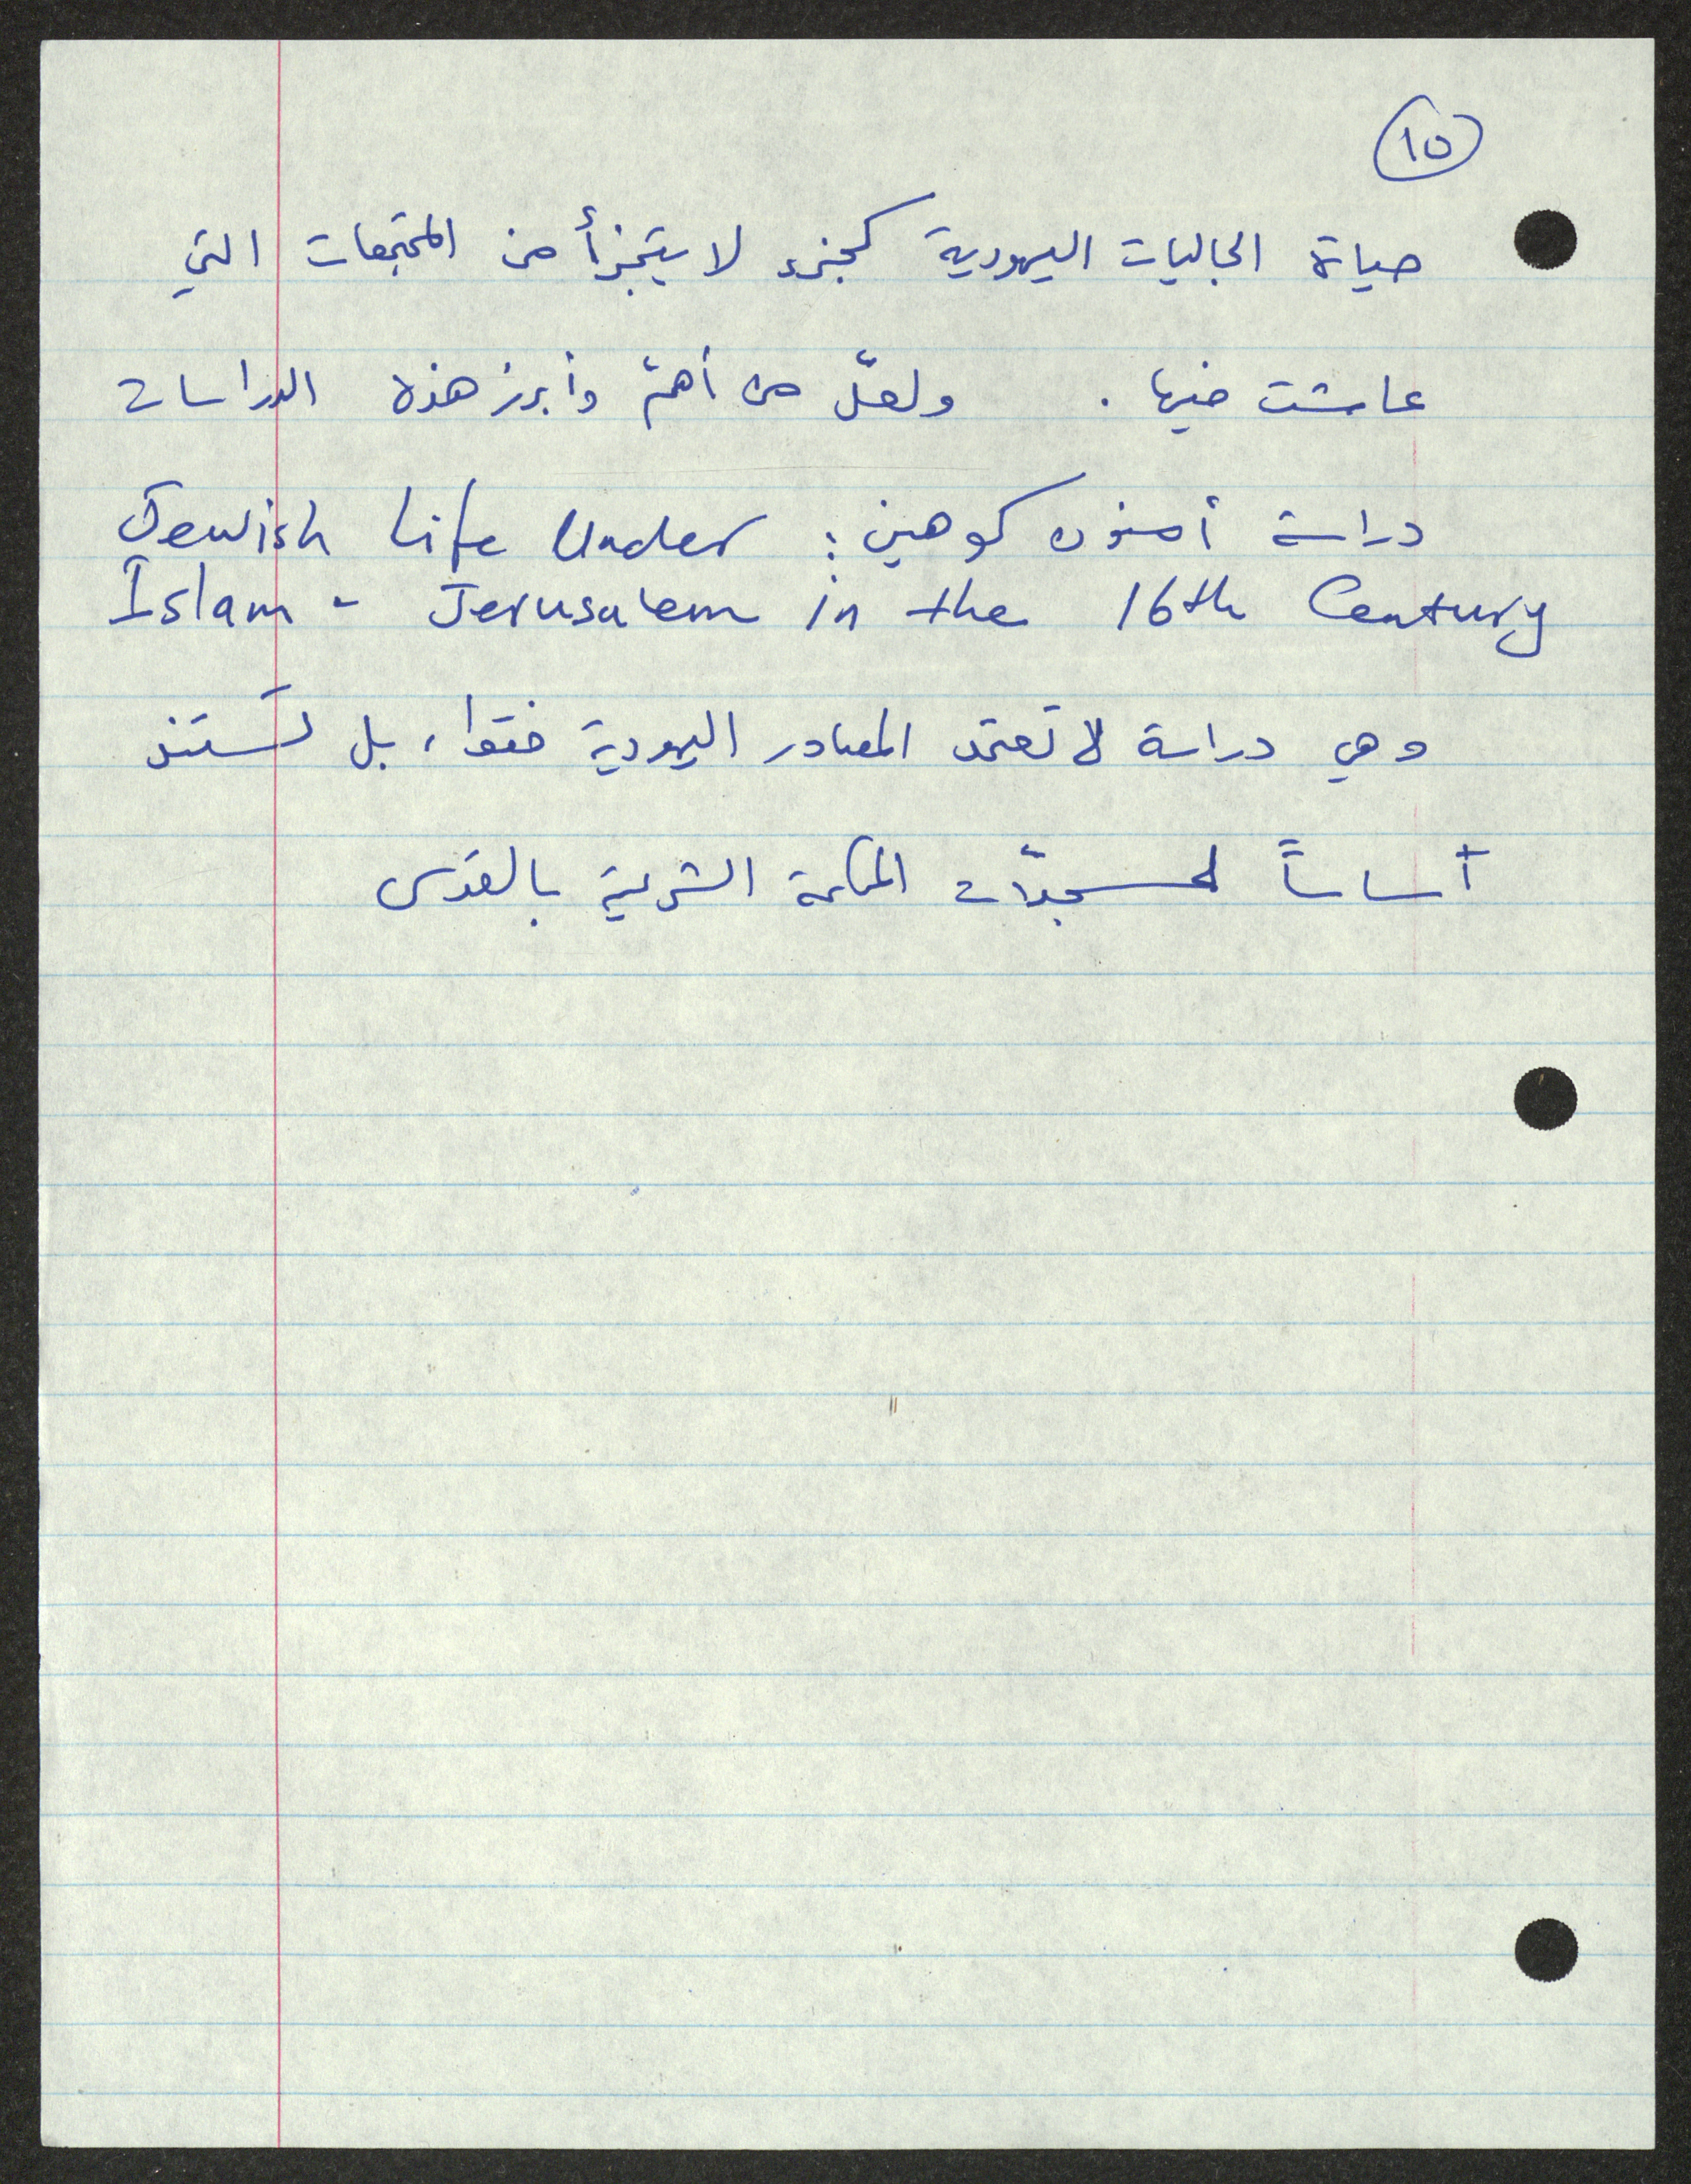 ١٥
حياة الجاليات اليهودية كجزء لا يتجزأ من المجتمعات التي
عاشت فيها . ولعلّ من أهمّ وأبرز هذه الدراسات
دراسة أمنون كوهين : Jewish Life Under
Islam - Jerusalem in the 16th Century
وهي دراسة لا تعتمد المصادر اليهودية فقط ، بل تستند
أساساً لسجلّات المحكمة الشرعية بالقدس